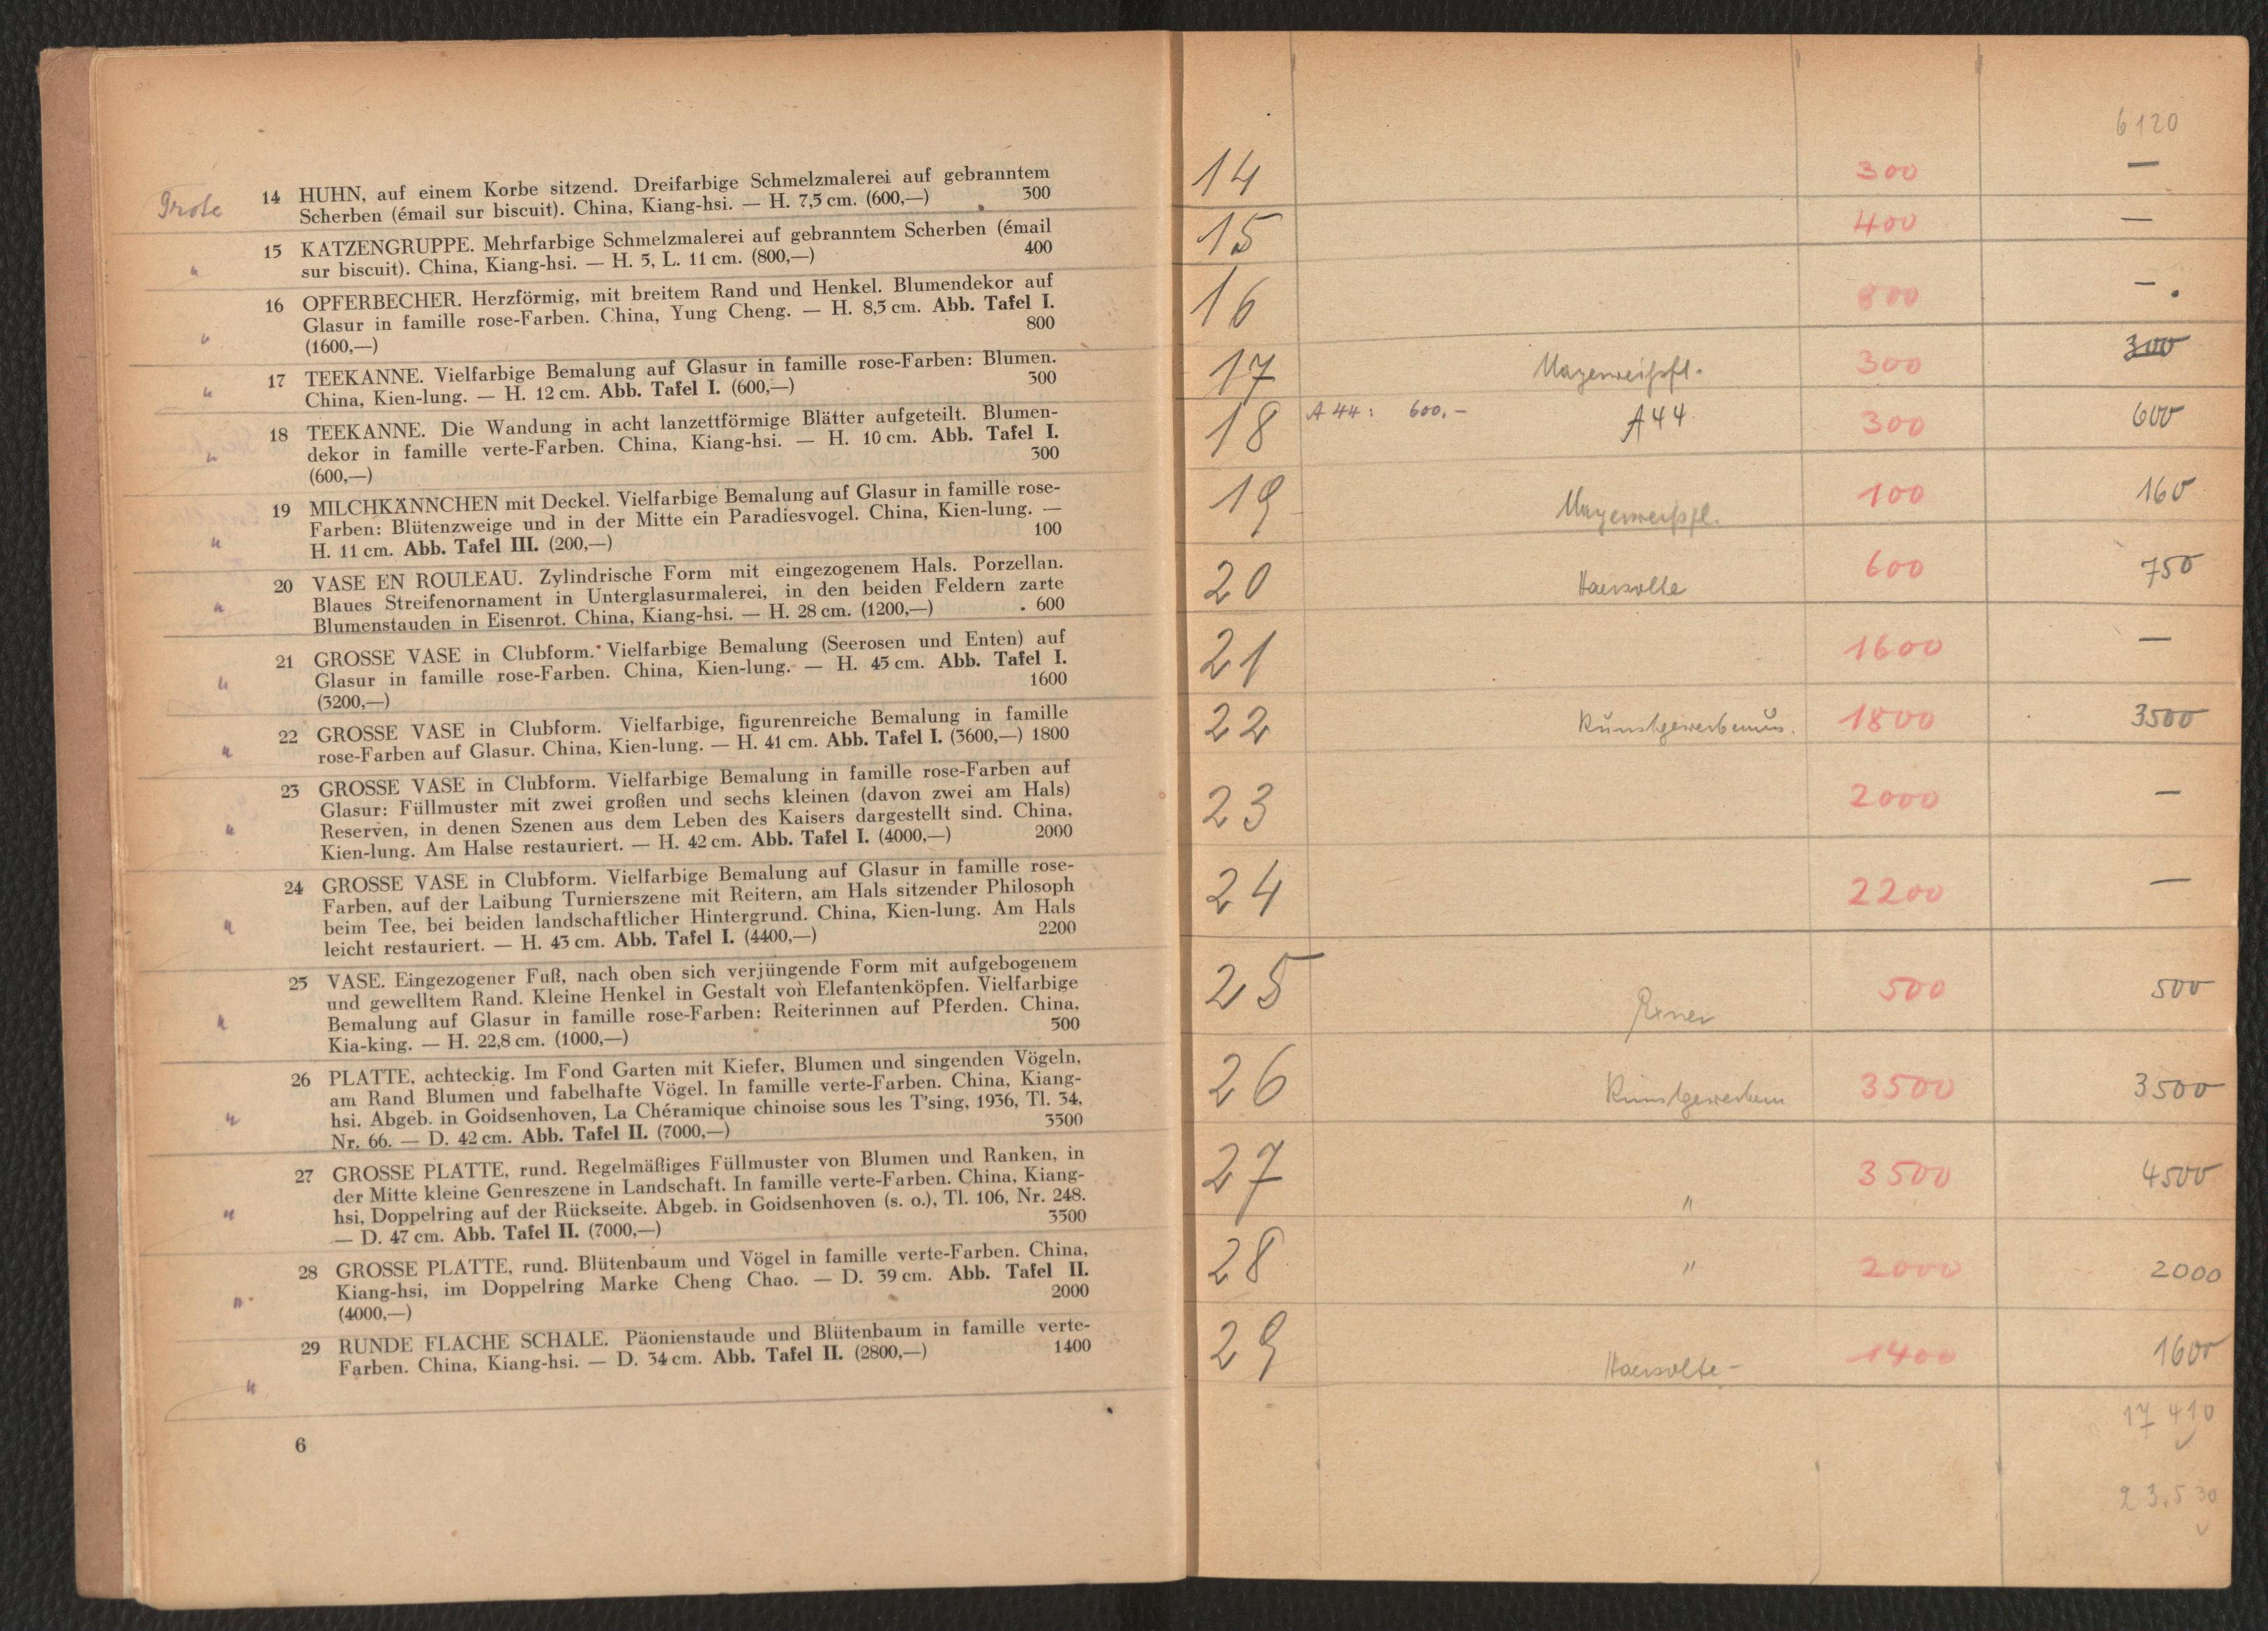 Grote
14 HUHN, auf einem Korbe sitzend. Dreifarbige Schmelzmalerei auf gebranntem
Scherben (émail sur biscuit). China, Kiang-hsi. — H. 7,5 cm. (600,—) 300
15 KATZENGRUPPE. Mehrfarbige Schmelzmalerei auf gebranntem Scherben (émail
sur biscuit). China, Kiang-hsi. — H. 5, L. 11 cm. (800,—) 400
16 OPFERBECHER. Herzförmig, mit breitem Rand und Henkel. Blumendekor auf
Glasur in famille rose-Farben. China, Yung Cheng. — H. 8,5 cm. Abb. Tafel I.
(1600,—) 800
17 TEEKANNE. Vielfarbige Bemalung auf Glasur in famille rose-Farben: Blumen.
China, Kien-lung. — H. 12 cm. Abb. Tafel I. (600,—) 300
18 TEEKANNE. Die Wandung in acht lanzettförmige Blätter aufgeteilt. Blumen-
dekor in famille verte-Farben. China, Kiang-hsi. — H. 10 cm. Abb. Tafel I.
(600,—) 300
19 MILCHKÄNNCHEN mit Deckel. Vielfarbige Bemalung auf Glasur in famille rose-
Farben: Blütenzweige und in der Mitte ein Paradiesvogel. China, Kien-lung. —
H. 11 cm. Abb. Tafel III. (200,—) 100
20 VASE EN ROULEAU. Zylindrische Form mit eingezogenem Hals. Porzellan.
Blaues Streifenornament in Unterglasurmalerei, in den beiden Feldern zarte
Blumenstauden in Eisenrot. China, Kiang-hsi. — H. 28 cm. (1200,—) 600
21 GROSSE VASE in Clubform. Vielfarbige Bemalung (Seerosen und Enten) auf
Glasur in famille rose-Farben. China, Kien-lung. — H. 45 cm. Abb. Tafel I.
(3200,—) 1600
22 GROSSE VASE in Clubform. Vielfarbige, figurenreiche Bemalung in famille
rose-Farben auf Glasur. China, Kien-lung. — H. 41 cm. Abb. Tafel I. (3600,—) 1800
23 GROSSE VASE in Clubform. Vielfarbige Bemalung in famille rose-Farben auf
Glasur: Füllmuster mit zwei großen und sechs kleinen (davon zwei am Hals)
Reserven, in denen Szenen aus dem Leben des Kaisers dargestellt sind. China,
Kien-lung. Am Halse restauriert. — H. 42 cm. Abb. Tafel I. (4000,—) 2000
24 GROSSE VASE in Clubform. Vielfarbige Bemalung auf Glasur in famille rose-
Farben, auf der Laibung Turnierszene mit Reitern, am Hals sitzender Philosoph
beim Tee, bei beiden landschaftlicher Hintergrund. China, Kien-lung. Am Hals
leicht restauriert. — H. 43 cm. Abb. Tafel I. (4400,—) 2200
25 VASE. Eingezogener Fuß, nach oben sich verjüngende Form mit aufgebogenem
und gewelltem Rand. Kleine Henkel in Gestalt von Elefantenköpfen. Vielfarbige
Bemalung auf Glasur in famille rose-Farben: Reiterinnen auf Pferden. China,
Kia-king. — H. 22,8 cm. (1000,—) 500
26 PLATTE, achteckig. Im Fond Garten mit Kiefer, Blumen und singenden Vögeln,
am Rand Blumen und fabelhafte Vögel. In famille verte-Farben. China, Kiang-
hsi. Abgeb. in Goidsenhoven, La Chéramique chinoise sous les T'sing, 1936, Tl. 34,
Nr. 66. — D. 42 cm. Abb. Tafel II. (7000,—) 3500
27 GROSSE PLATTE, rund. Regelmäßiges Füllmuster von Blumen und Ranken, in
der Mitte kleine Genreszene in Landschaft. In famille verte-Farben. China, Kiang-
hsi, Doppelring auf der Rückseite. Abgeb. in Goidsenhoven (s. o.), Tl. 106, Nr. 248.
— D. 47 cm. Abb. Tafel II. (7000,—) 3500
28 GROSSE PLATTE, rund. Blütenbaum und Vögel in famille verte-Farben. China,
Kiang-hsi, im Doppelring Marke Cheng Chao. — D. 39 cm. Abb. Tafel II.
(4000,—) 2000
29 RUNDE FLACHE SCHALE. Päonienstaude und Blütenbaum in famille verte-
Farben. China, Kiang-hsi. — D. 34 cm. Abb. Tafel II. (2800,—) 1400
6
6120
14 300 —
15 400 —
16 800 —
17 300 300
18 A 44: 600.- A 44 300 600
19 100 160
20 Haersolte 600 750
21 1600 —
22 Kunstgewerbemus. 1800 3500
23 2000 —
24 2200 —
25 Exner 500 500
26 Kunstgewerbem 3500 3500
27 " 3500 4500
28 " 2000 2000
29 Haersolte - 1400 1600
17 410
23.530